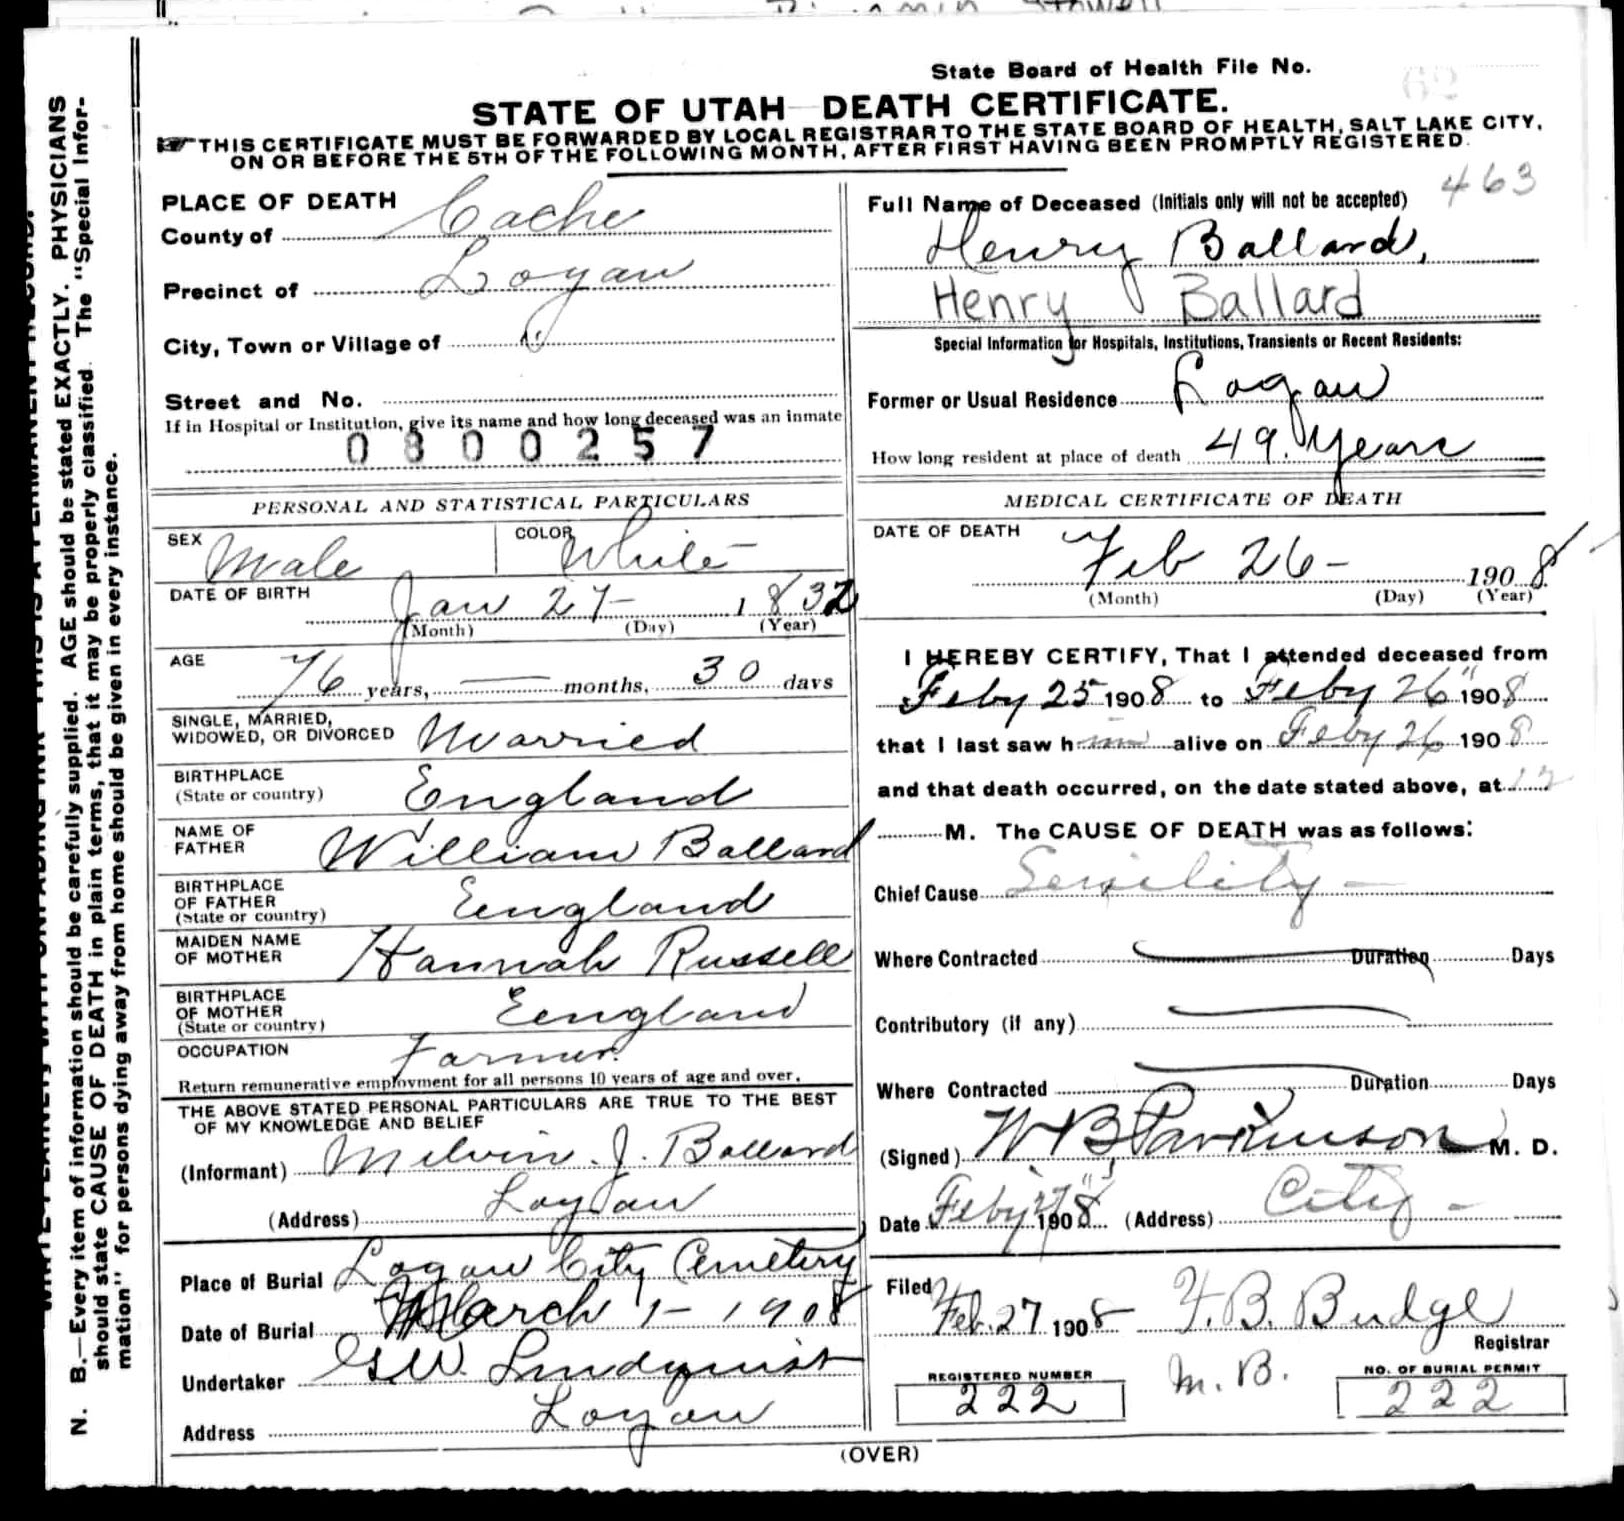 State Board of Health File No. 62
STATE OF UTAH DEATH CERTIFICATE.
THIS CERTIFICATE MUST BE FORWARDED BY LOCAL REGISTRAR TO THE STATE BOARD OF HEALTH, SALT LAKE CITY,
ON OR BEFORE THE 5TH OF THE FOLLOWING MONTH, AFTER FIRST HAVING BEEN PROMPTLY REGISTERED.
N. B.—Every item of information should be carefully supplied. AGE should be stated EXACTLY. PHYSICIANS
should state CAUSE OF DEATH in plain terms, that it may be properly classified. The "Special Infor-
mation" for persons dying away from home should be given in every instance.
PLACE OF DEATH
County of Cache
Precinct of Logan
City, Town or Village of "
Street and No.
If in Hospital or Institution, give its name and how long deceased was an inmate
0800257
PERSONAL AND STATISTICAL PARTICULARS
SEX Male COLOR White
DATE OF BIRTH Jan 27 1832
(Month) (Day) (Year)
AGE 76 years, — months, 30 days
SINGLE, MARRIED,
WIDOWED, OR DIVORCED Married
BIRTHPLACE
(State or country) England
NAME OF
FATHER William Ballard
BIRTHPLACE
OF FATHER
(State or country) England
MAIDEN NAME
OF MOTHER Hannah Russell
BIRTHPLACE
OF MOTHER
(State or country) England
OCCUPATION Farmer.
Return remunerative employment for all persons 10 years of age and over.
THE ABOVE STATED PERSONAL PARTICULARS ARE TRUE TO THE BEST
OF MY KNOWLEDGE AND BELIEF
(Informant) Melvin. J. Ballard
(Address) Logan
Place of Burial Logan City Cemetery
Date of Burial March 1- 1908
Undertaker G.W. Lindquist
Address Logan
463
Full Name of Deceased (Initials only will not be accepted)
Henry Ballard,
Henry Ballard
Special Information for Hospitals, Institutions, Transients or Recent Residents:
Former or Usual Residence Logan
How long resident at place of death 49. Years
MEDICAL CERTIFICATE OF DEATH
DATE OF DEATH
Feb 26- 1908
(Month) (Day) (Year)
I HEREBY CERTIFY, That I attended deceased from
Feby 25 1908 to Feby 26" 1908
that I last saw him alive on Feby 26 1908
and that death occurred, on the date stated above, at 12
M. The CAUSE OF DEATH was as follows:
Chief Cause Senility —
Where Contracted — Duration Days
Contributory (if any) —
Where Contracted — Duration Days
(Signed) W B Parkinson M. D.
Date Feby 27" 1908 (Address) City -
Filed Feb. 27 1908 F. B. Budge
Registrar
REGISTERED NUMBER
222
M. B.
NO. OF BURIAL PERMIT
222
(OVER)